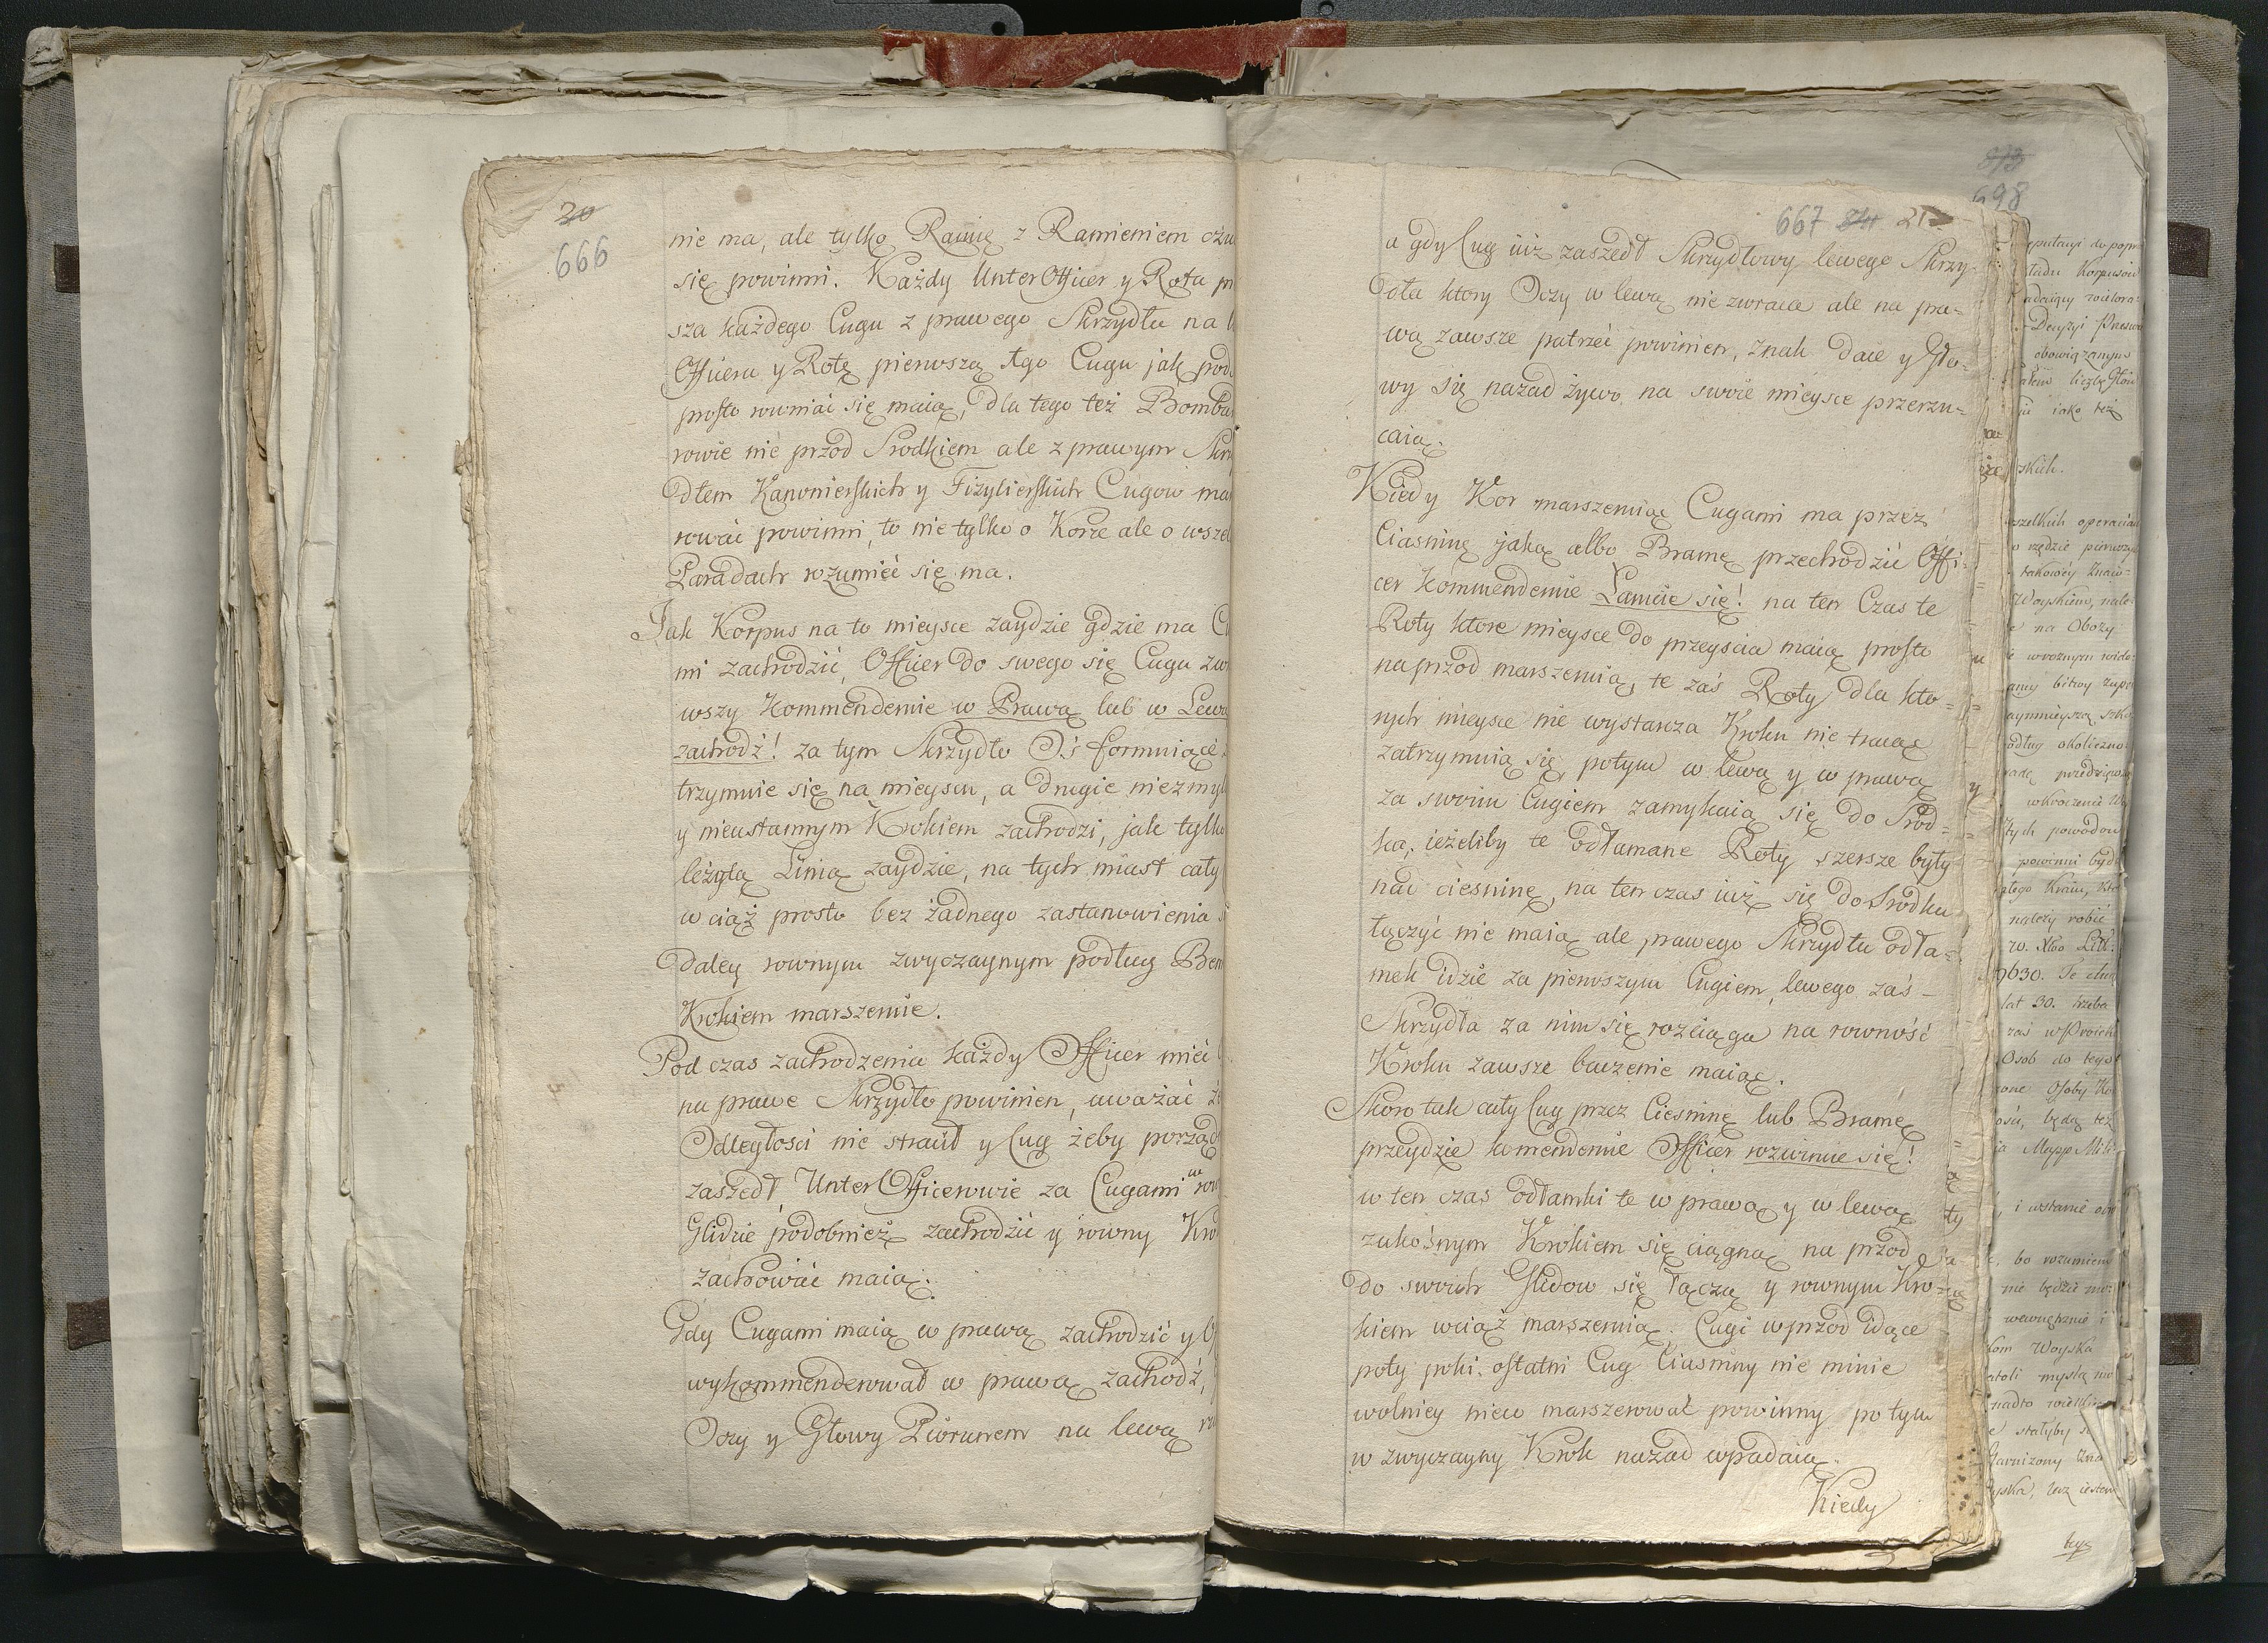 20
666
nie ma, ale tylko Ramię z Ramieniem czu
się powinni. Każdy UnterOfficer y Rota pi
sza każdego Cugu z prawego Skrzydła na
Officera y Rotę pierwszą tego Cugu jak pod
prosto rownać się maią, dla tego też Bomba
rowie nie przod Srodkiem ale z prawym Skrzy
dłem Kanonierskich y Fizylierskich Cugow mas
rować powinni, to nie tylko o Korze ale o wszel
Paradach rozumieć się ma.
Jak Korpus na to mieysce zaydzie gdzie ma Cu
mi zachodzić, Officer do swego się Cugu zwr
wszy Kommenderuie w Prawą lub w Lewą
zachodź! za tym Skrzydło Oś formuiące
trzymuie się na mieyscu, a drugie niezmy
y nieustannym Krokiem zachodzi, jak tylko
leżytą Linią zaydzie, na tych miast cały
w ciąż prosto bez żadnego zastanowienia s
daley rownym zwyczaynym podług Ben
Krokiem marszeruie.
Pod czas zachodzenia każdy Officer mieć
na prawe Skrzydło powinien, uważać ż
Odległosci nie stracił y Cug żeby porząd
zaszedł UnterOfficerowie za Cugami w row
Glidzie podobnież zachodzić y rowny Kro
zachować maią.
Gdy Cugami maią w prawą zachodzić y O
wykommenderował w prawą zachodź,
Oczy y Głowy Piorunem na lewą rz
667 21
698
a gdy Cug iuż zaszedł Skrzydłowy lewego Skrzy-
dła ktory Oczy w lewą nie zwraca ale na pra=
wą zawsze patrzeć powinien, znak daie y Gło-
wy się nazad żywo na swoie mieysce przerzu=
caią.
Kiedy Kor marszeruiąc Cugami ma przez
Ciasninę jaką albo Bramę przechodzić Offi-
cer Kommenderuie Łamcie się! na ten Czas te
Roty ktore mieysce do przeyscia maią prosto
na przod marszeruią, te zaś Roty dla kto=
rych mieysce nie wystarcza Kroku nie tracąc
zatrzymuią się, potym w lewą y w prawą
za swoim Cugiem zamykaią się do Srod=
ka, ieżeliby te odłamane Roty szersze były
nad ciesninę, na ten czas iuż się do Srodku
łączyć nie maią ale prawego Skrzydła odła=
mek idzie za pierwszym Cugiem, lewego zaś -
Skrzydła za nim się rozciąga na rowność
Kroku zawsze baczenie maiąc.
Skoro tak cały Cug przez Ciesninę lub Bramę
przeydzie komenderuie Officer rozwinie się!
w ten czas odłamki te w prawą y w lewą
zukośnym Krokiem się ciągnąc na przod
do swoich Glidow się łączą y rownym Kro=
kiem wciąż marszeruią. Cugi w przod idące
poty poki ostatni Cug Ciasniny nie minie
wolniey nieco marszerować powinny po tym
w zwyczayny Krok nazad wpadaią.
Kiedy
putacyi do popr
Korpusow
obowiązanym
iako też
skich.
szelkich operaciach
rzędzie pierwszy
takowey Znaw=
Woyskiem, nale
na Obozy
bitwy zupe
podług okoliczno
tych powodow
powinni bydź
należy robić
lat 30. trzeba
Osob do tego
Osoby Ko
będą też
Mappe Mili
bo rozumiem
nie będzie mo
wewnętrznie i
Woyska
myslą
nadto
stałyby
Garnizony